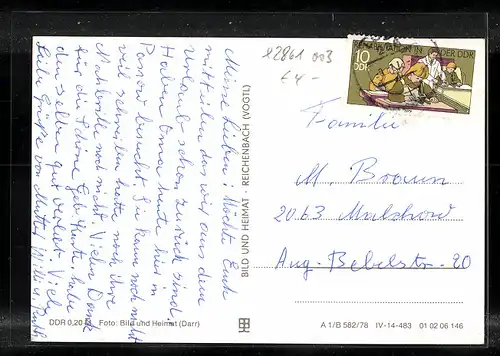 X2861 003
4,-
REHABILITATION IN DER DDR
10
DDR
Meine Lieben! Möchte Euch
mitteilen das wir aus dem
Urlaub schon zurück sind.
Haben Oma heute hier in
besucht. Sie kann noch nicht
viel schreiben hatte noch ihre
noch nicht. Vielen Dank
für die schöne Geb. Karte. habe
den selben gut verlebt. Viele
liebe Grüße von Mutter, Willi u. Ruth
BILD UND HEIMAT · REICHENBACH (VOGTL)
Familie
M. Braun
2063 Malchow
Aug-Bebelstr. 20
DDR 0,20 M Foto: Bild und Heimat (Darr)
A 1/B 582/78 IV-14-483 01 02 06 146